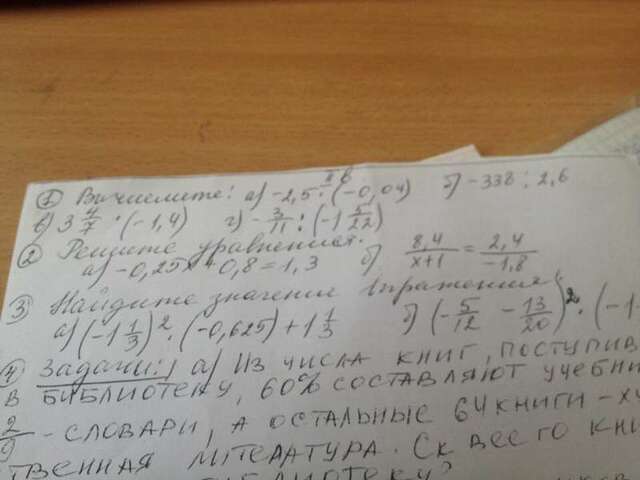 ① Вычислите: а) -2,5 · (-0,04) б) -338 : 2,6
в) 3 4/7 · (-1,4) г) - 3/11 : (-1 5/22)
② Решите уравнения:
а) -0,25x + 0,8 = 1,3 б) 8,4/(x+1) = 2,4/(-1,8)
③ Найдите значения выражения
а) (-1 1/3)² · (-0,625) + 1 1/3 б) (- 5/12 - 13/20)² · (-1
④ Задачи: а) Из числа книг, поступив
в библиотеку, 60% составляют учебни
2/9 - словари, а остальные 64 книги - ху
твенная литература. Ск всего кни
библиотеку?